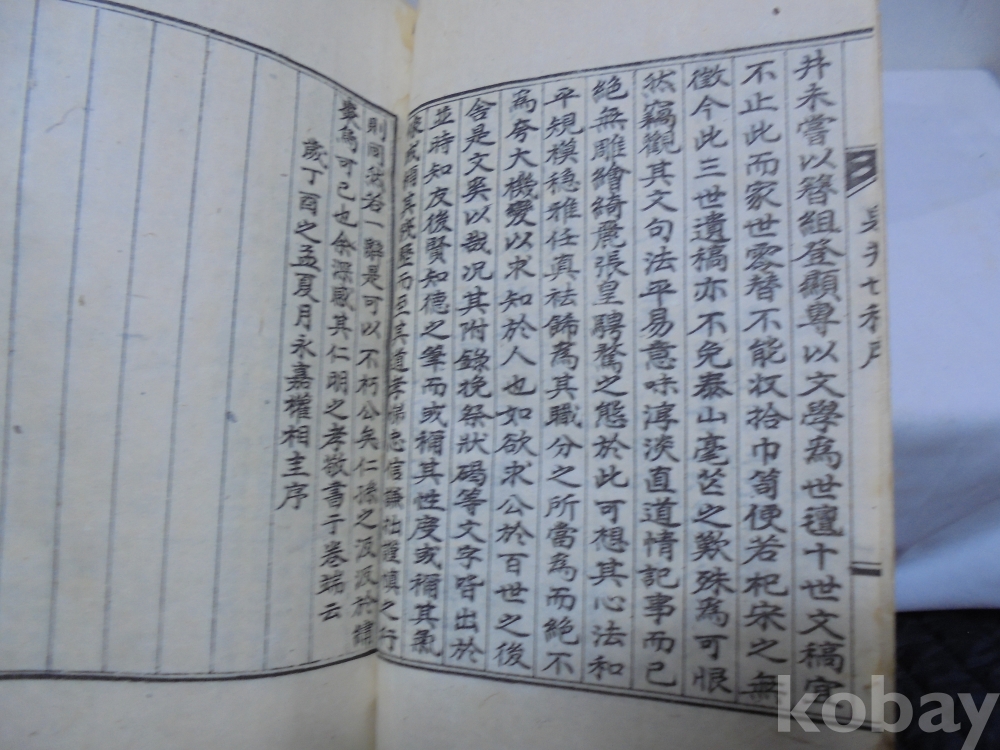 井未嘗以簪組登顯專以文學爲世邅十世文稿宜
不止此而家世零替不能收拾巾笥便若杞宋之無
徵今此三世遺稿亦不免泰山毫芒之歎殊爲可恨
然竊觀其文句法平易意味淳淡直道情記事而已
絶無雕繪綺麗張皇騁騖之態於此可想其心法和
平規模穩雅任真祛餙爲其職分之所當爲而絶不
爲夸大機變以求知於人也如欲求公於百世之後
舍是文奚以哉况其附錄挽祭狀碣等文字皆出於
並時知友後賢知德之筆而或稱其性度或稱其氣
而至其道孝悌忠信謙拙謹愼之行
則同然若一辭是可以不朽公矣仁孫之汲汲於
爲可已也余深感其仁明之孝敬書于卷端云
歲丁酉之孟夏月永嘉權相圭序
kobay